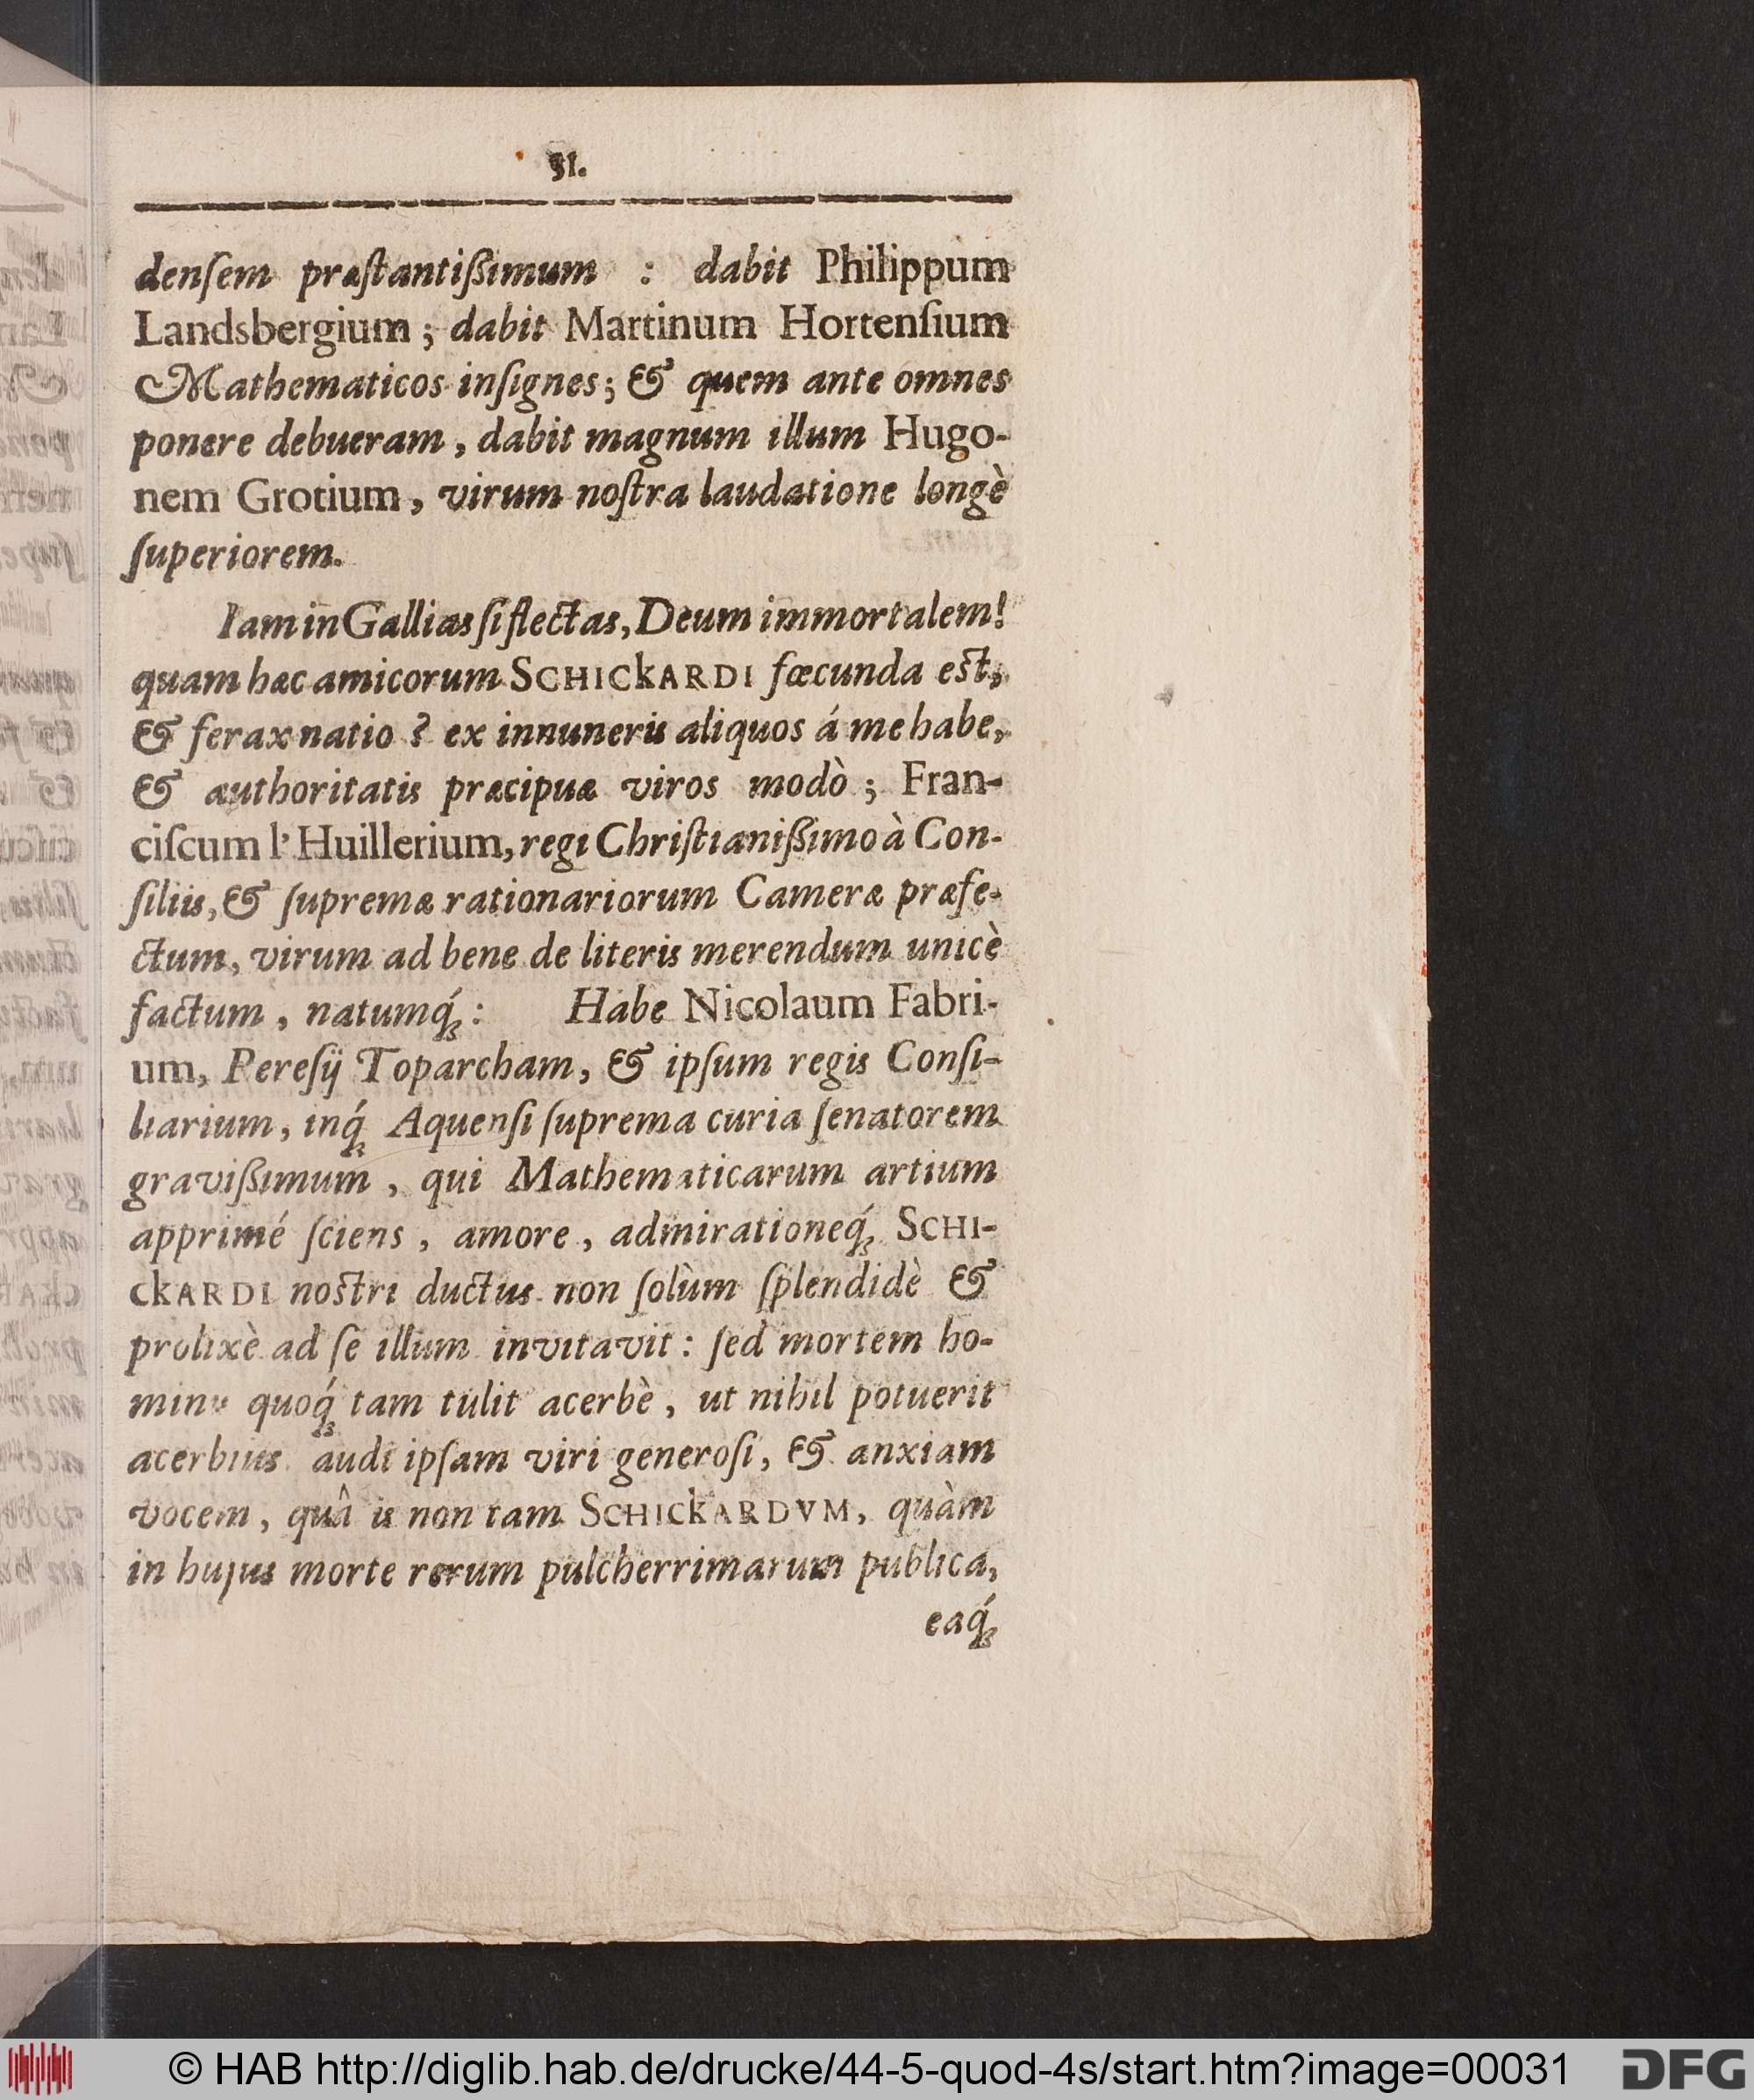 31.
denſem præſtantißimum : dabit Philippum
Landsbergium; dabit Martinum Hortenſium
Mathematicos inſignes; & quem ante omnes
ponere debueram, dabit magnum illum Hugo-
nem Grotium, virum noſtra laudatione longè
ſuperiorem.
Iam in Gallias ſi flectas, Deum immortalem!
quam hæc amicorum SCHICkARDI fœcunda eſt,
& ferax natio? ex innuneris aliquos á me habe,
& authoritatis præcipuæ viros modò; Fran-
ciſcum l'Huillerium, regi Chriſtianißimo à Con-
ſiliis, & ſupremæ rationariorum Cameræ præfe-
ctum, virum ad bene de literis merendum unicè
factum, natumq́;: Habe Nicolaum Fabri-
um, Pereſij Toparcham, & ipſum regis Conſi-
liarium, inq́; Aquenſi ſuprema curia ſenatorem
gravißimum, qui Mathematicarum artium
apprimé ſciens, amore, admirationeq́; SCHI-
CkARDI noſtri ductus non ſolùm ſplendidè &
prolixè ad ſe illum invitavit: ſed mortem ho-
minis quoq́; tam tulit acerbè, ut nihil potuerit
acerbius. audi ipſam viri generoſi, & anxiam
vocem, quâ is non tam SCHICkARDVM, quàm
in hujus morte rerum pulcherrimarum publica,
eaq́;
© HAB http://diglib.hab.de/drucke/44-5-quod-4s/start.htm?image=00031
DFG